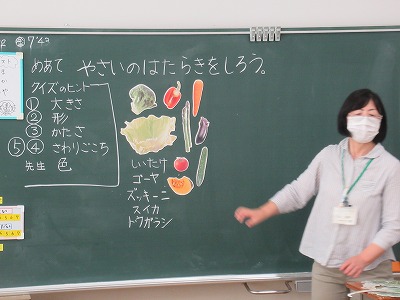 7'40
めあて やさいのはたらきをしろう。
クイズのヒント
① 大きさ
② 形
③ かたさ
⑤④ さわりごこち
先生 色
しいたけ
ゴーヤ
ズッキーニ
スイカ
トウガラシ